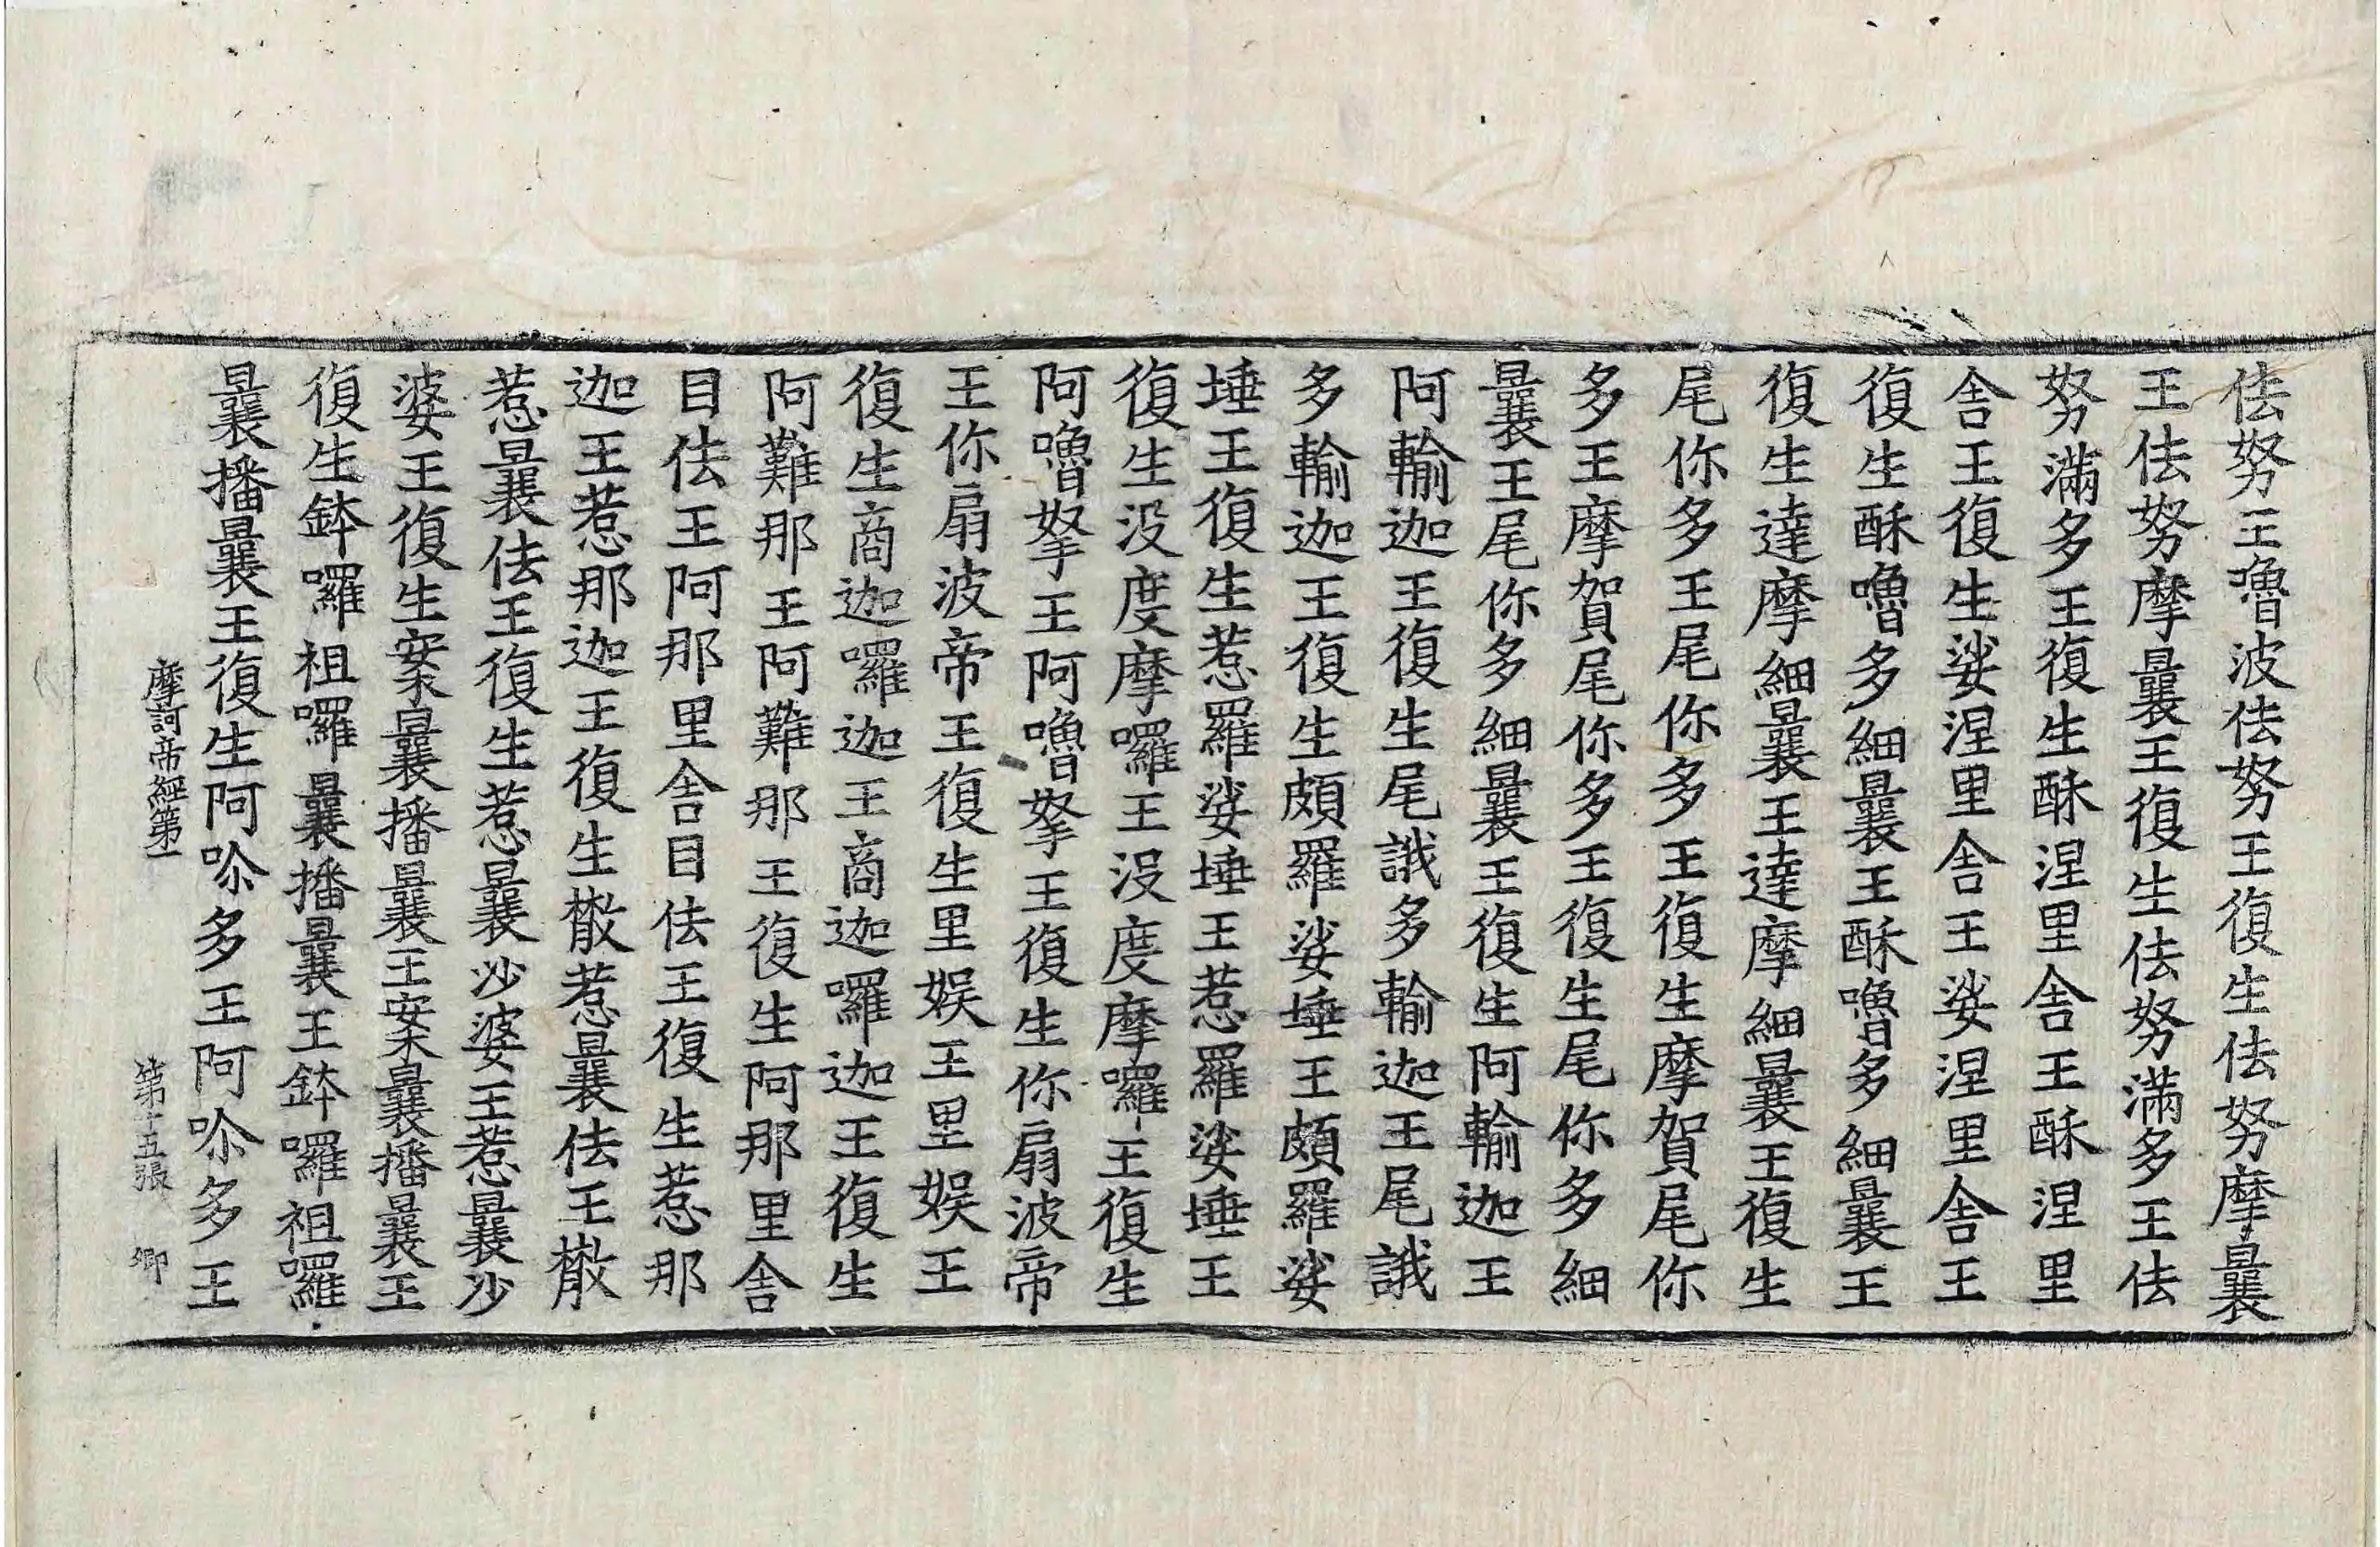 佉努王嚕波佉努王復生佉努摩曩
王佉努摩曩王復生佉努滿多王佉
努滿多王復生酥涅里舍王酥涅里
舍王復生娑涅里舍王娑涅里舍王
復生酥嚕多細曩王酥嚕多細曩王
復生達摩細曩王達摩細曩王復生
尾你多王尾你多王復生摩賀尾你
多王摩賀尾你多王復生尾你多細
曩王尾你多細曩王復生阿輸迦王
阿輸迦王復生尾誐多輸迦王尾誐
多輸迦王復生頗羅娑埵王頗羅娑
埵王復生惹羅娑埵王惹羅娑埵王
復生没度摩囉王沒度摩囉王復生
阿嚕拏王阿嚕拏王復生你扇波帝
王你扇波帝王復生里娛王里娛王
復生商迦囉迦王商迦囉迦王復生
阿難那王阿難那王復生阿那里舍
目佉王阿那里舍目佉王復生惹那
迦王惹那迦王復生樧惹曩佉王樧
惹曩佉王復生惹曩沙婆王惹曩沙
婆王復生案曩播曩王案曩播曩王
復生鉢囉祖囉曩播曩王鉢囉祖囉
曩播曩王復生阿尒多王阿尒多王
摩訶帝經第一　第十五張　卿